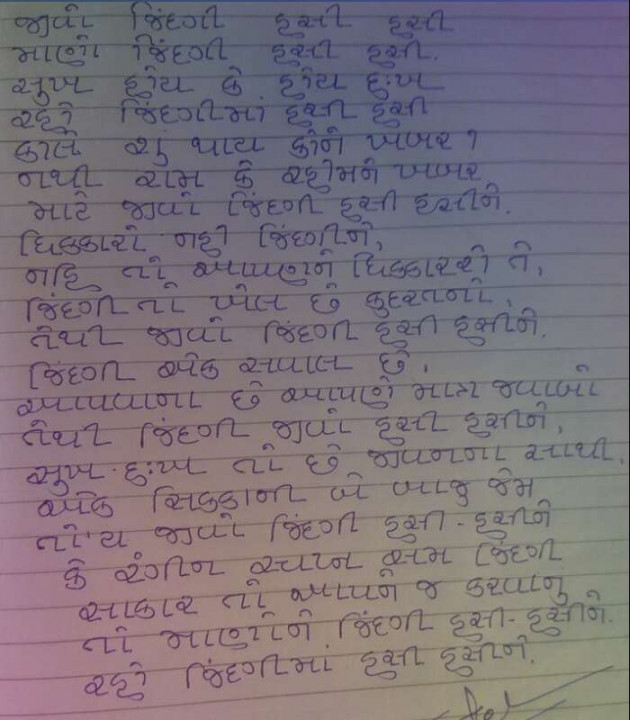 જીવો જિંદગી હસી હસી
માણો જિંદગી હસી હસી.
સુખ હોય કે હોય દુઃખ
રહો જિંદગીમાં હસી હસી
કાલે શું થાય કોને ખબર ?
નથી રામ કે રહીમને ખબર
માટે જીવો જિંદગી હસી હસીને.
ધિક્કારો નહી જિંદગીને,
નહિ તો આપણને ધિક્કારશે તે,
જિંદગી તો ખેલ છે કુદરતનો,
તેથી જીવો જિંદગી હસી હસીને.
જિંદગી એક સવાલ છે,
આપવાના છે આપણે માત્ર જવાબો
તેથી જિંદગી જીવો હસી હસીને,
સુખ-દુઃખ તો છે જીવનના સાથી.
એક સિક્કાની બે બાજુ જેમ
તો'ય જીવો જિંદગી હસી-હસીને
કે રંગીન સ્વપ્ન સમ જિંદગી
સાકાર તો આપને જ કરવાનુ
તો માણોને જિંદગી હસી-હસીને.
રહો જિંદગીમાં હસી હસીને.